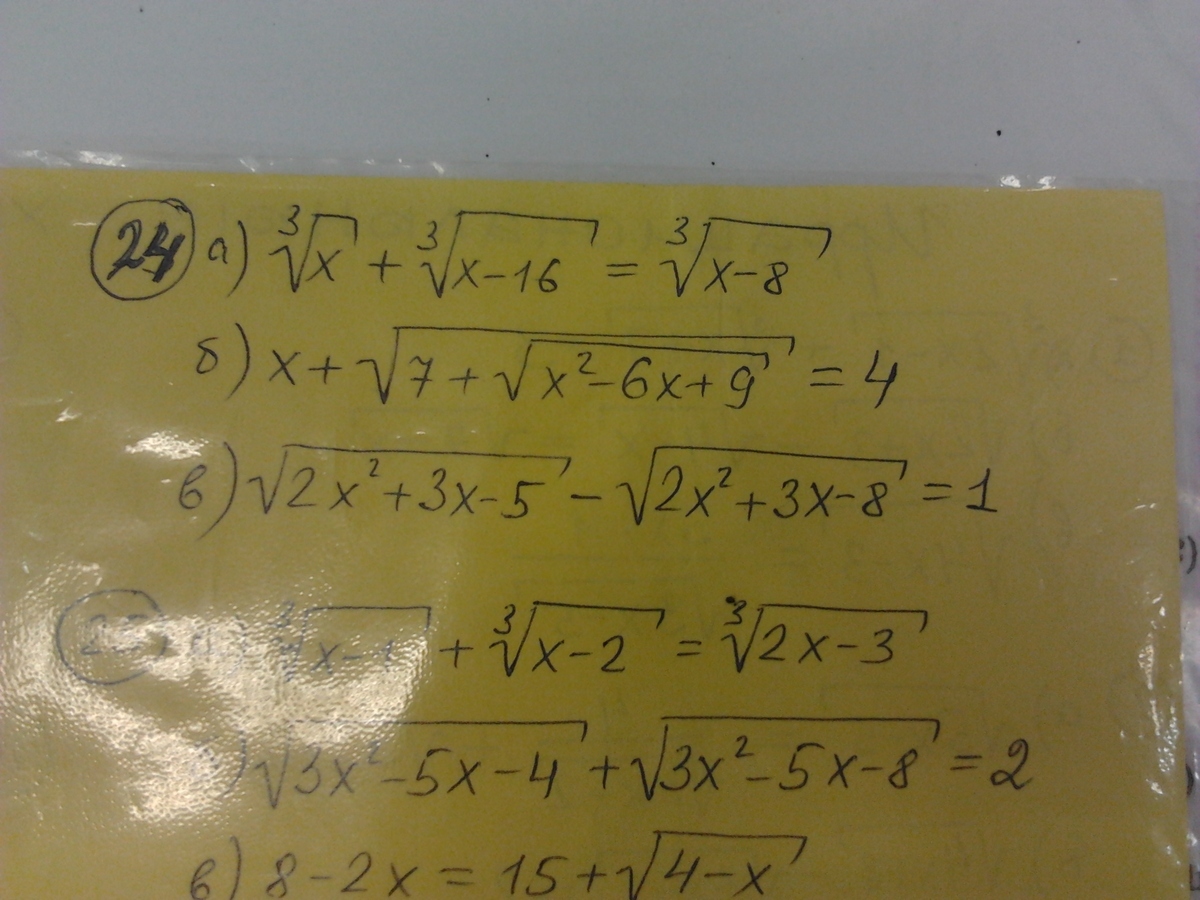 24 а) ∛x + ∛(x-16) = ∛(x-8)
б) x + √(7 + √(x²-6x+9)) = 4
в) √(2x²+3x-5) - √(2x²+3x-8) = 1
∛(x-1) + ∛(x-2) = ∛(2x-3)
) √(3x²-5x-4) + √(3x²-5x-8) = 2
в) 8-2x = 15 + √(4-x)